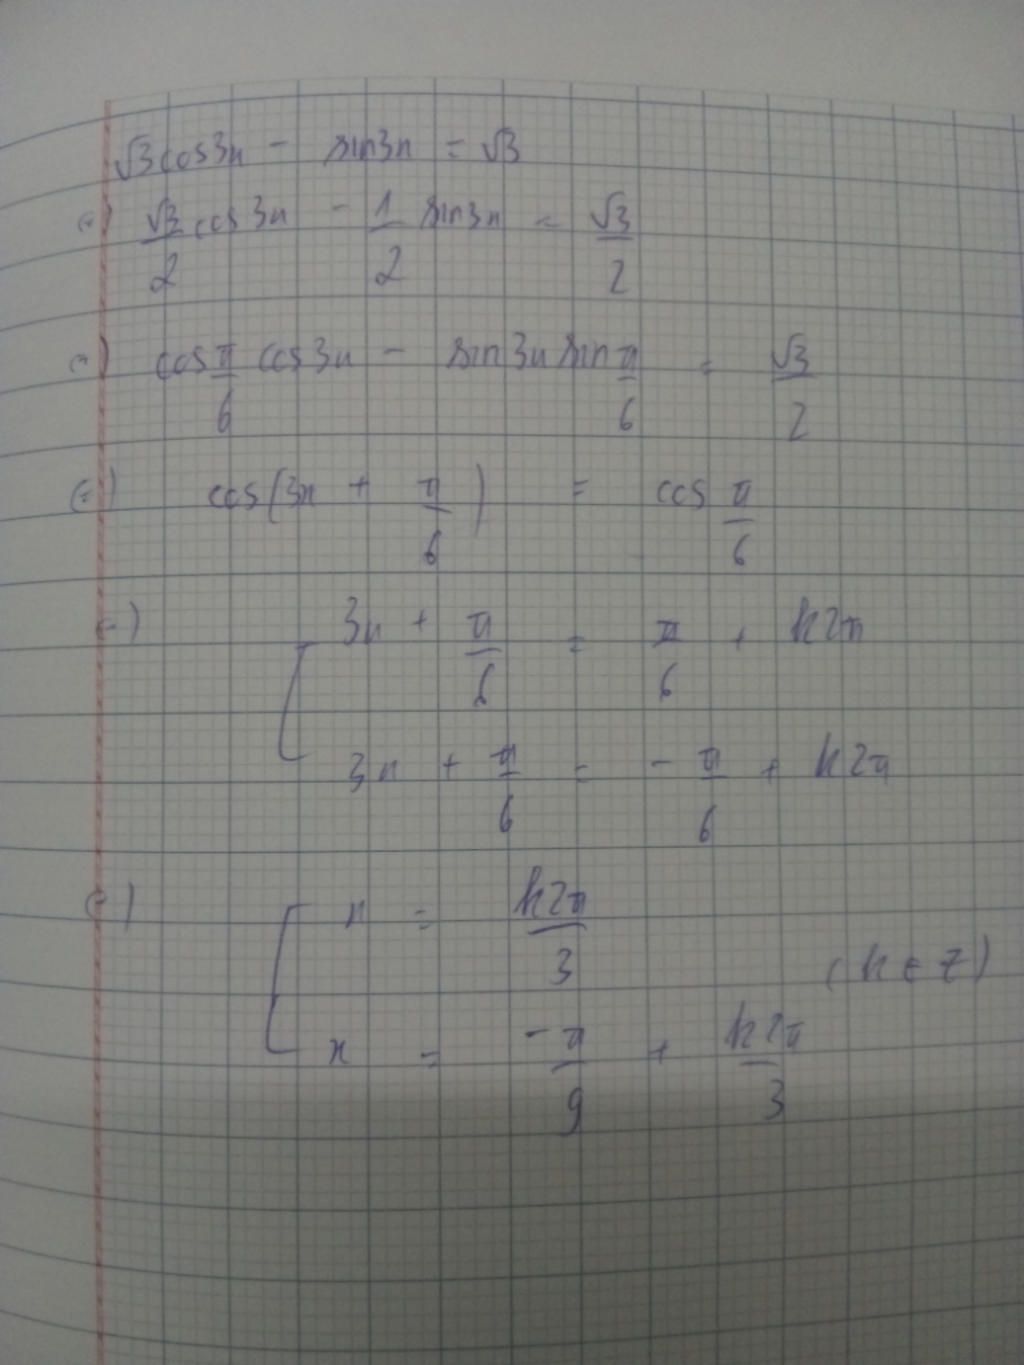 √3cos3x - sin3x = √3
(=) √3/2 cos3x - 1/2 sin3x = √3/2
(=) cos π/6 cos3x - sin3x sin π/6 = √3/2
(=) cos(3x + π/6) = cos π/6
(=) [ 3x + π/6 = π/6 + k2π
3x + π/6 = -π/6 + k2π
(=) [ x = k2π/3
(k ∈ Z)
x = -π/9 + k2π/3